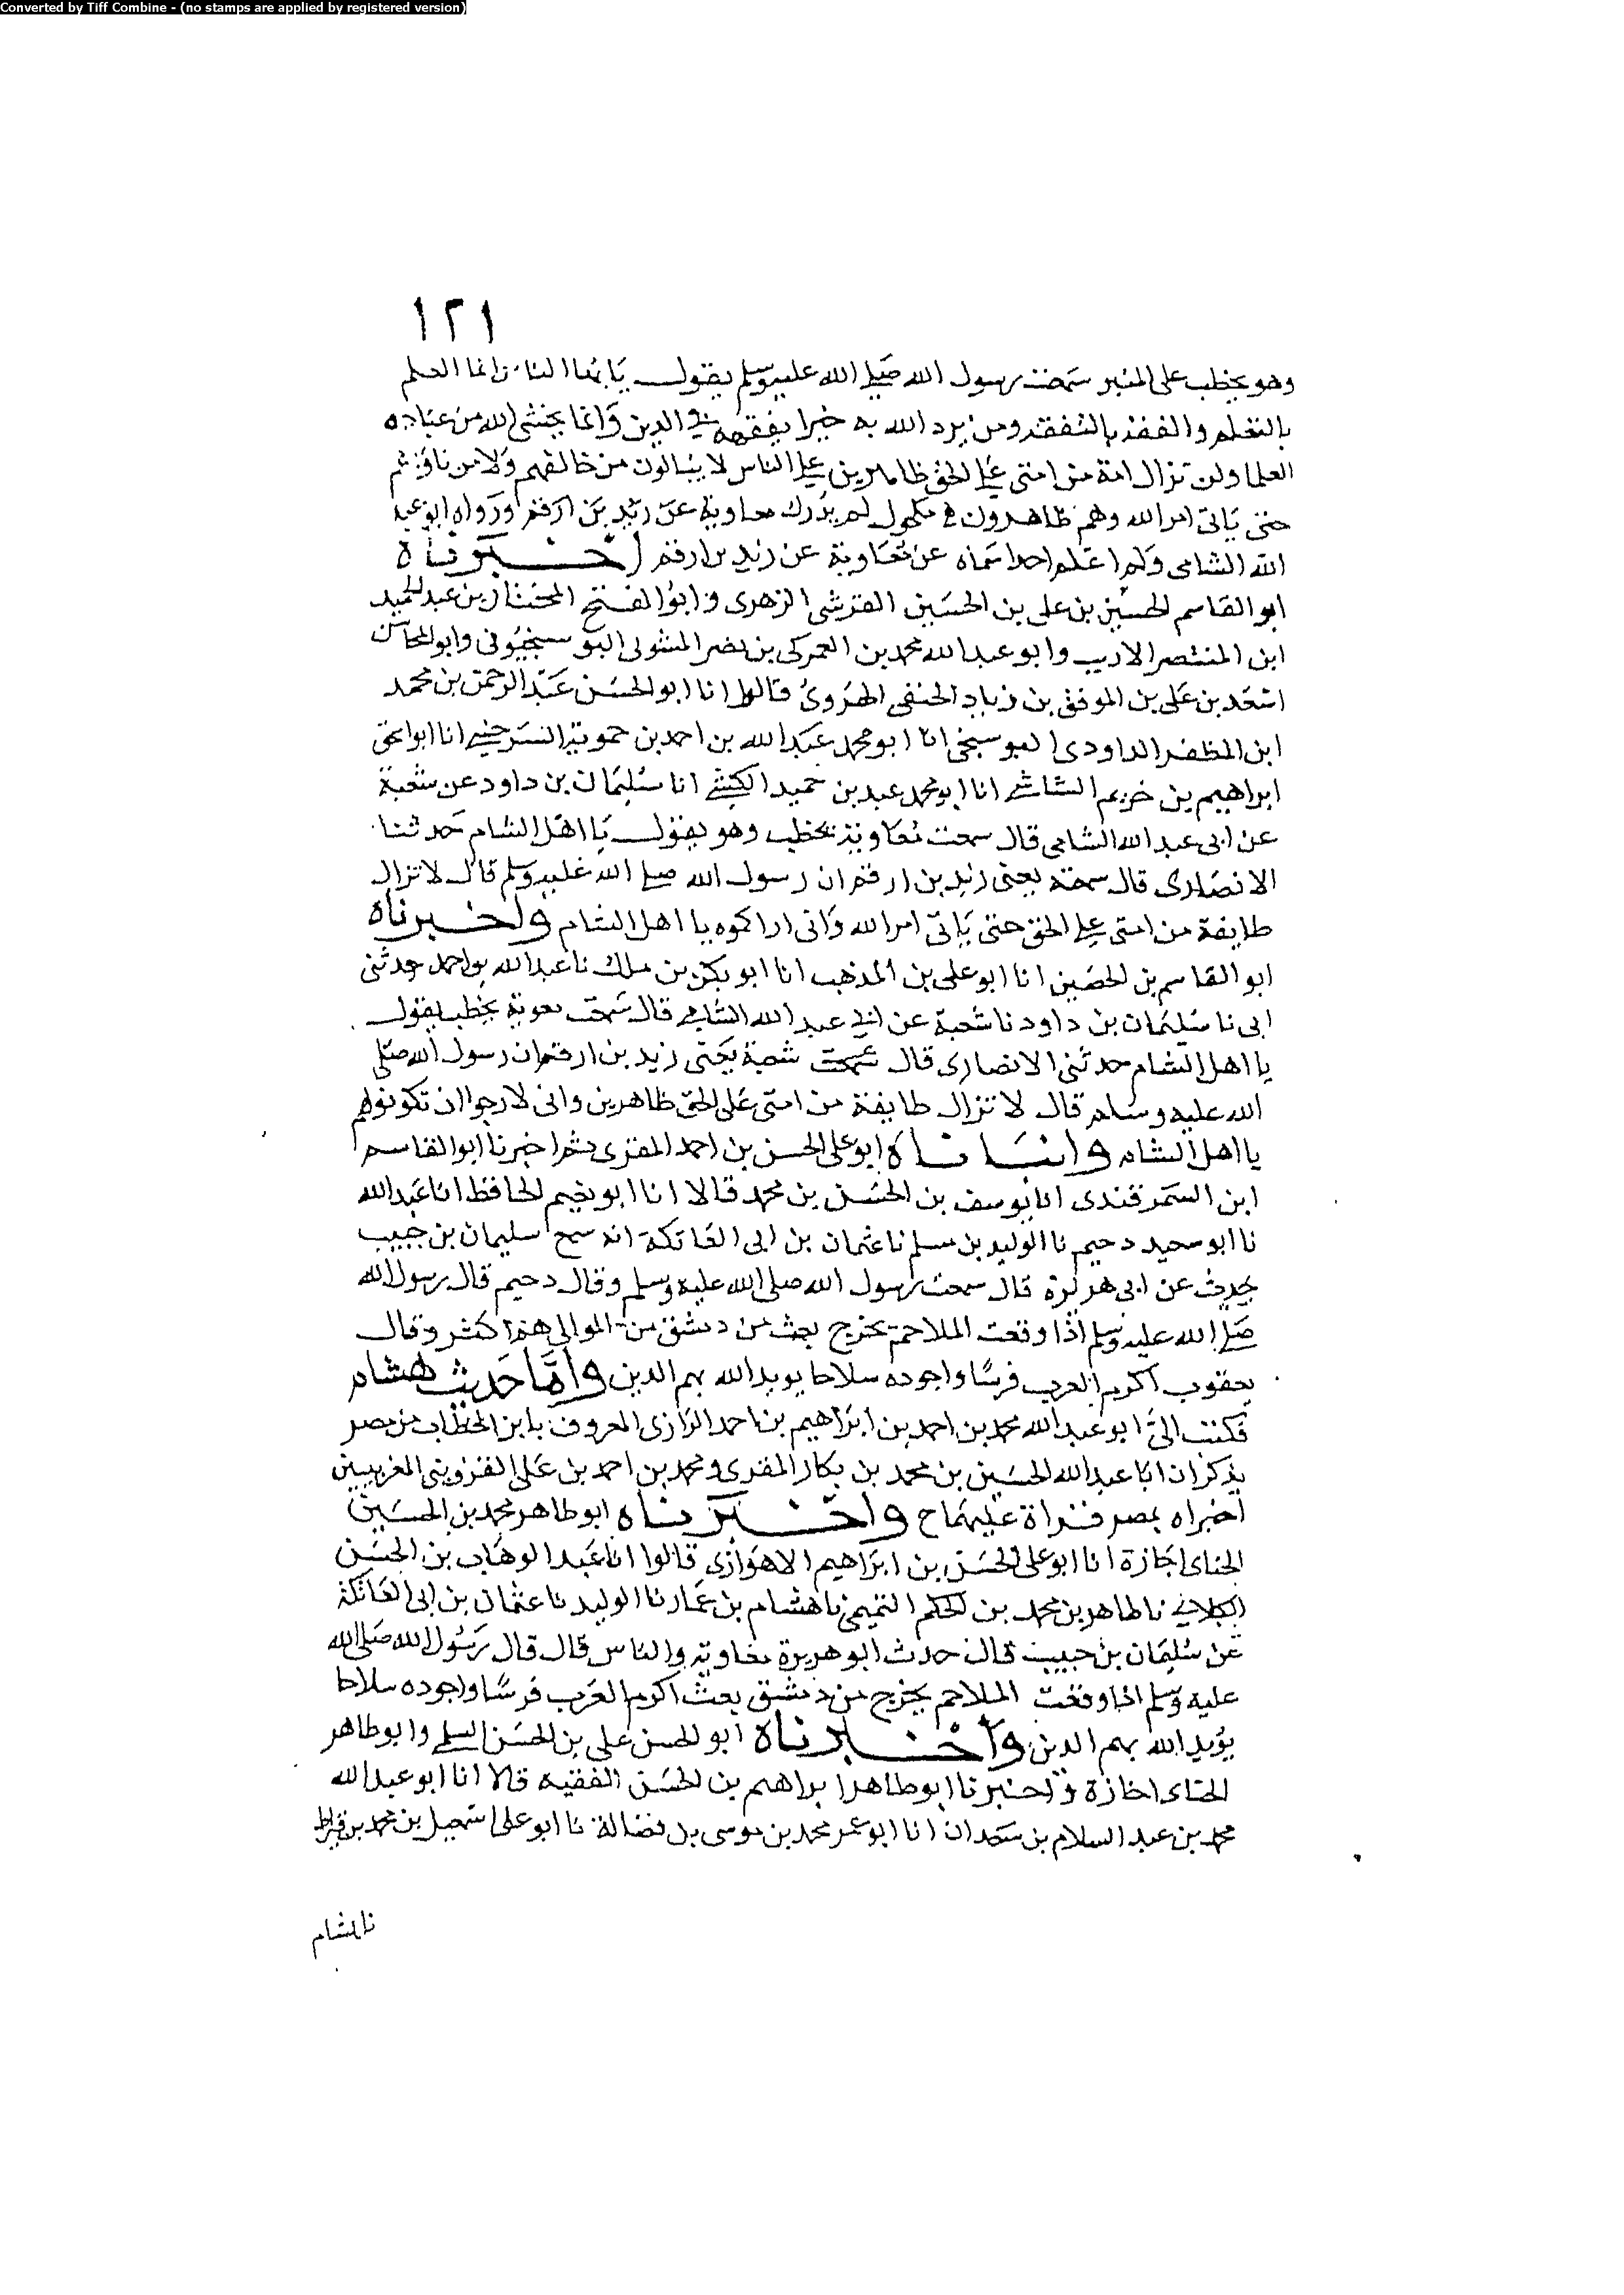 Converted by Tiff Combine - (no stamps are applied by registered version)
١٢١
وهو يخطب على المنبر سمعت رسول الله صلى الله عليه وسلم يقول يا ايها الناس انما العلم
بالتعلم والفقه بالتفقه ومن يرد الله به خيرا يفقهه في الدين وانما يخشى الله من عباده
العلما ولن تزال امة من امتي على الحق ظاهرين على الناس لا يبالون من خالفهم ولا من ناوئهم
حتى ياتي امر الله وهم ظاهرون مكحول لم يدرك معاوية عن زيد بن ارقم ورواه ابو عبد
الله الشامي ولم اعلم احدا سماه عن معاوية عن زيد بن ارقم اخبرناه
ابو القاسم الحسين بن علي بن الحسين القرشي الزهري وابو الفتح المختار بن عبد الحميد
ابن المنتصر الاديب وابو عبد الله محمد بن العمركي بن نصر المتولي البوسنجيوني وابو المحاسن
اسعد بن علي بن الموفق بن زياد الحنفي الهروي قالوا انا ابو الحسن عبد الرحمن بن محمد
ابن المظفر الداودي البوسنجي انا ابو محمد عبد الله بن احمد بن حموية السرخسي انا ابو اسحق
ابراهيم بن خزيم الشاشي انا ابو محمد عبد بن حميد الكشي انا سليمان بن داود عن شعبة
عن ابي عبد الله الشامي قال سمعت معاوية يخطب وهو يقول يا اهل الشام حدثنا
الانصاري قال سمعته يعني زيد بن ارقم ان رسول الله صلى الله عليه وسلم قال لا تزال
طايفة من امتي على الحق حتى ياتي امر الله واني اراكموه يا اهل الشام واخبرناه
ابو القاسم بن الحصين انا ابو علي بن المذهب انا ابو بكر بن ملك نا عبد الله بن احمد حدثني
ابي نا سليمان بن داود نا شعبة عن ابي عبد الله الشامي قال سمعت معوية يخطب يقول
يا اهل الشام حدثني الانصاري قال شعبة يعني زيد بن ارقم ان رسول الله صلى
الله عليه وسلم قال لا تزال طايفة من امتي على الحق ظاهرين واني لارجوا ان تكونوهم
يا اهل الشام وانبأناه ابو علي الحسن بن احمد المقري ثم اخبرنا ابو القاسم
ابن السمرقندي انا يوسف بن الحسن بن محمد قالا انا ابو نعيم الحافظ انا عبد الله
نا ابو سعيد دحيم نا الوليد بن مسلم نا عثمان بن ابي العاتكة انه سمع سليمان بن حبيب
يحدث عن ابي هريرة قال سمعت رسول الله صلى الله عليه وسلم وقال دحيم قال رسول الله
صلى الله عليه وسلم اذا وقعت الملاحم يخرج بعث من دمشق من الموالي هم اكثر وقال
يعقوب اكرم العرب فرسا واجوده سلاحا يويد الله بهم الدين واما حديث هشام
فكتب الي ابو عبد الله محمد بن احمد بن ابراهيم بن احمد الرازي المعروف بابن الحطاب من مصر
يذكر ان ابا عبد الله الحسين بن محمد بن بكار المقري ومحمد بن احمد بن علي القزويني المغربيين
اخبراه بمصر قراة عليهما ح واخبرناه ابو طاهر محمد بن الحسين
الحناي اجازة انا ابو علي الحسن بن ابراهيم الاهوازي قالوا انا عبد الوهاب بن الحسن
الكلابي نا طاهر بن محمد بن الحكم التميمي نا هشام بن عمار نا الوليد نا عثمان بن ابي العاتكة
عن سليمان بن حبيب قال حدث ابو هريرة معاوية والناس قال قال رسول الله صلى الله
عليه وسلم اذا وقعت الملاحم يخرج من دمشق بعث اكرم العرب فرسا واجوده سلاحا
يؤيد الله بهم الدين واخبرناه ابو الحسن علي بن الحسن السلمي وابو طاهر
الحناي اجازة واخبرنا ابو طاهر ابراهيم بن الحسن الفقيه قالا انا ابو عبد الله
محمد بن عبد السلام بن سعدان انا ابو عمر محمد بن موسى بن فضالة نا ابو علي اسمعيل بن محمد بن قيراط
نا هشام